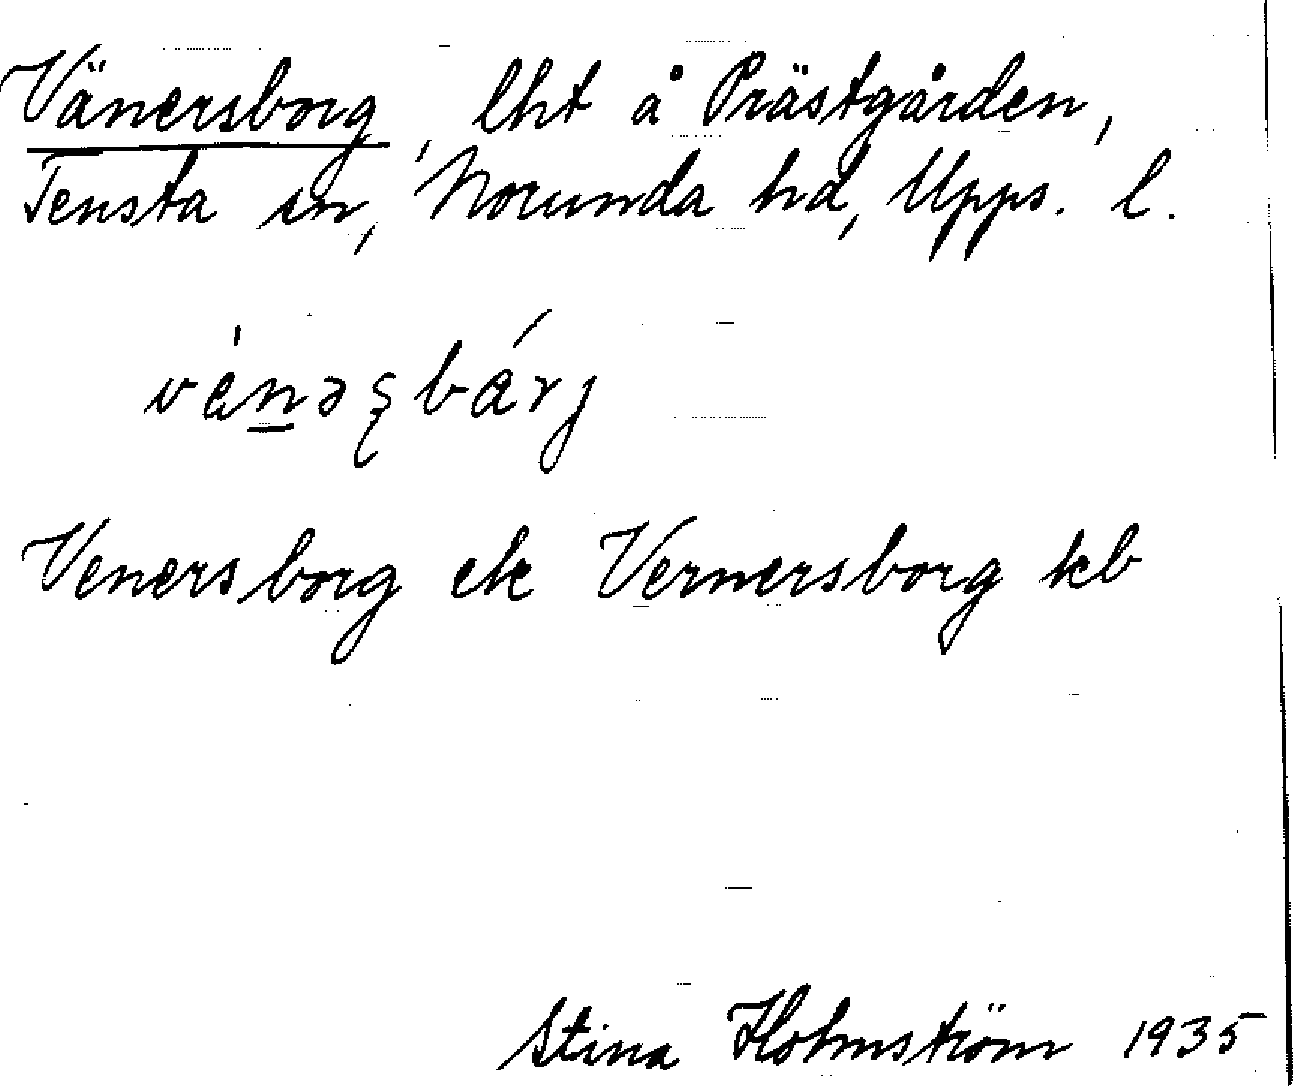 Vänersborg, lht å Prästgården,
Tensta sn, Norunda hd, Upps. l.
Venersborg ek Vernersborg kb
Stina Holmström 1935